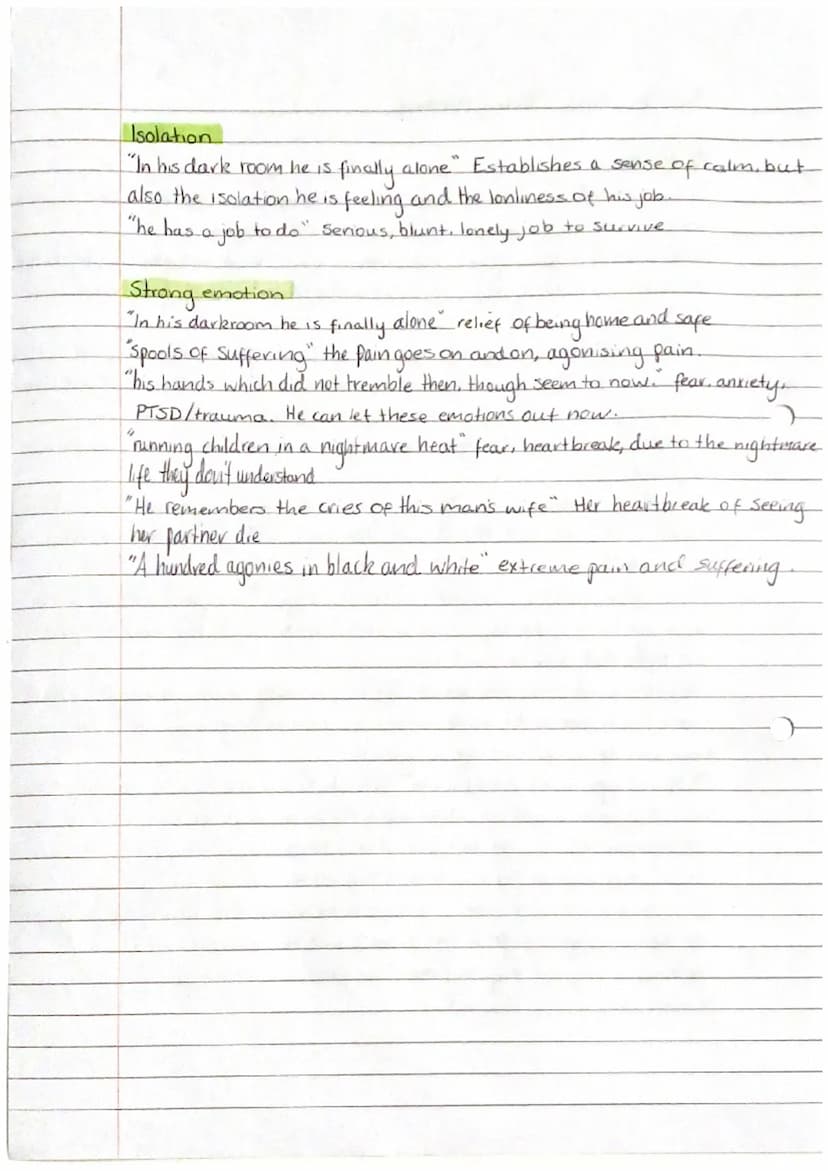 Isolation
"In his dark room he is finally alone" Establishes a sense of calm, but
also the isolation he is feeling and the lonliness of his job.
"he has a job to do" Serious, blunt, lonely job to survive
Strong emotion
"In his darkroom he is finally alone" relief of being home and safe
"spools of suffering" the pain goes on and on, agonising pain.
"his hands which did not tremble then, though seem to now." fear, anxiety,
PTSD/trauma. He can let these emotions out now.
"running children in a nightmare heat" fear, heartbreak, due to the nightmare
life they don't understand
"He remembers the cries of this man's wife" Her heartbreak of seeing
her partner die
"A hundred agonies in black and white" extreme pain and suffering.